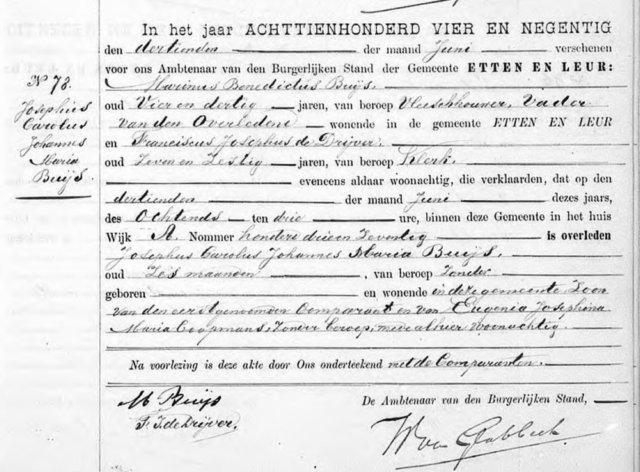 In het jaar ACHTTIENHONDERD VIER EN NEGENTIG
den dertienden der maand Juni verschenen
voor ons Ambtenaar van den Burgerlijken Stand der Gemeente ETTEN EN LEUR:
No 78.
Josephus
Carolus
Johannes
Maria
Buijs.
Marinus Benedictus Buijs.
oud Vier en dertig jaren, van beroep Vleeschhouwer, Vader
van den Overledene wonende in de gemeente ETTEN EN LEUR
en Franciscus Josephus de Drijver.
oud Zeven en Zestig jaren, van beroep Klerk.
eveneens aldaar woonachtig, die verklaarden, dat op den
dertienden der maand Juni dezes jaars,
des Ochtends ten drie ure, binnen deze Gemeente in het huis
Wijk A. Nommer honderd drie en Zeventig is overleden
Josephus Carolus Johannes Maria Buijs.
oud Zes maanden, van beroep Zonder
geboren en wonende in deze gemeente Zoon
van den eerstgenoemden Comparant en van Eugenia Josephina
Maria Coopmans, Zonder beroep, mede alhier woonachtig.
Na voorlezing is deze akte door Ons onderteekend met de Comparanten.
M Buijs
F. J. de Drijver.
De Ambtenaar van den Burgerlijken Stand,